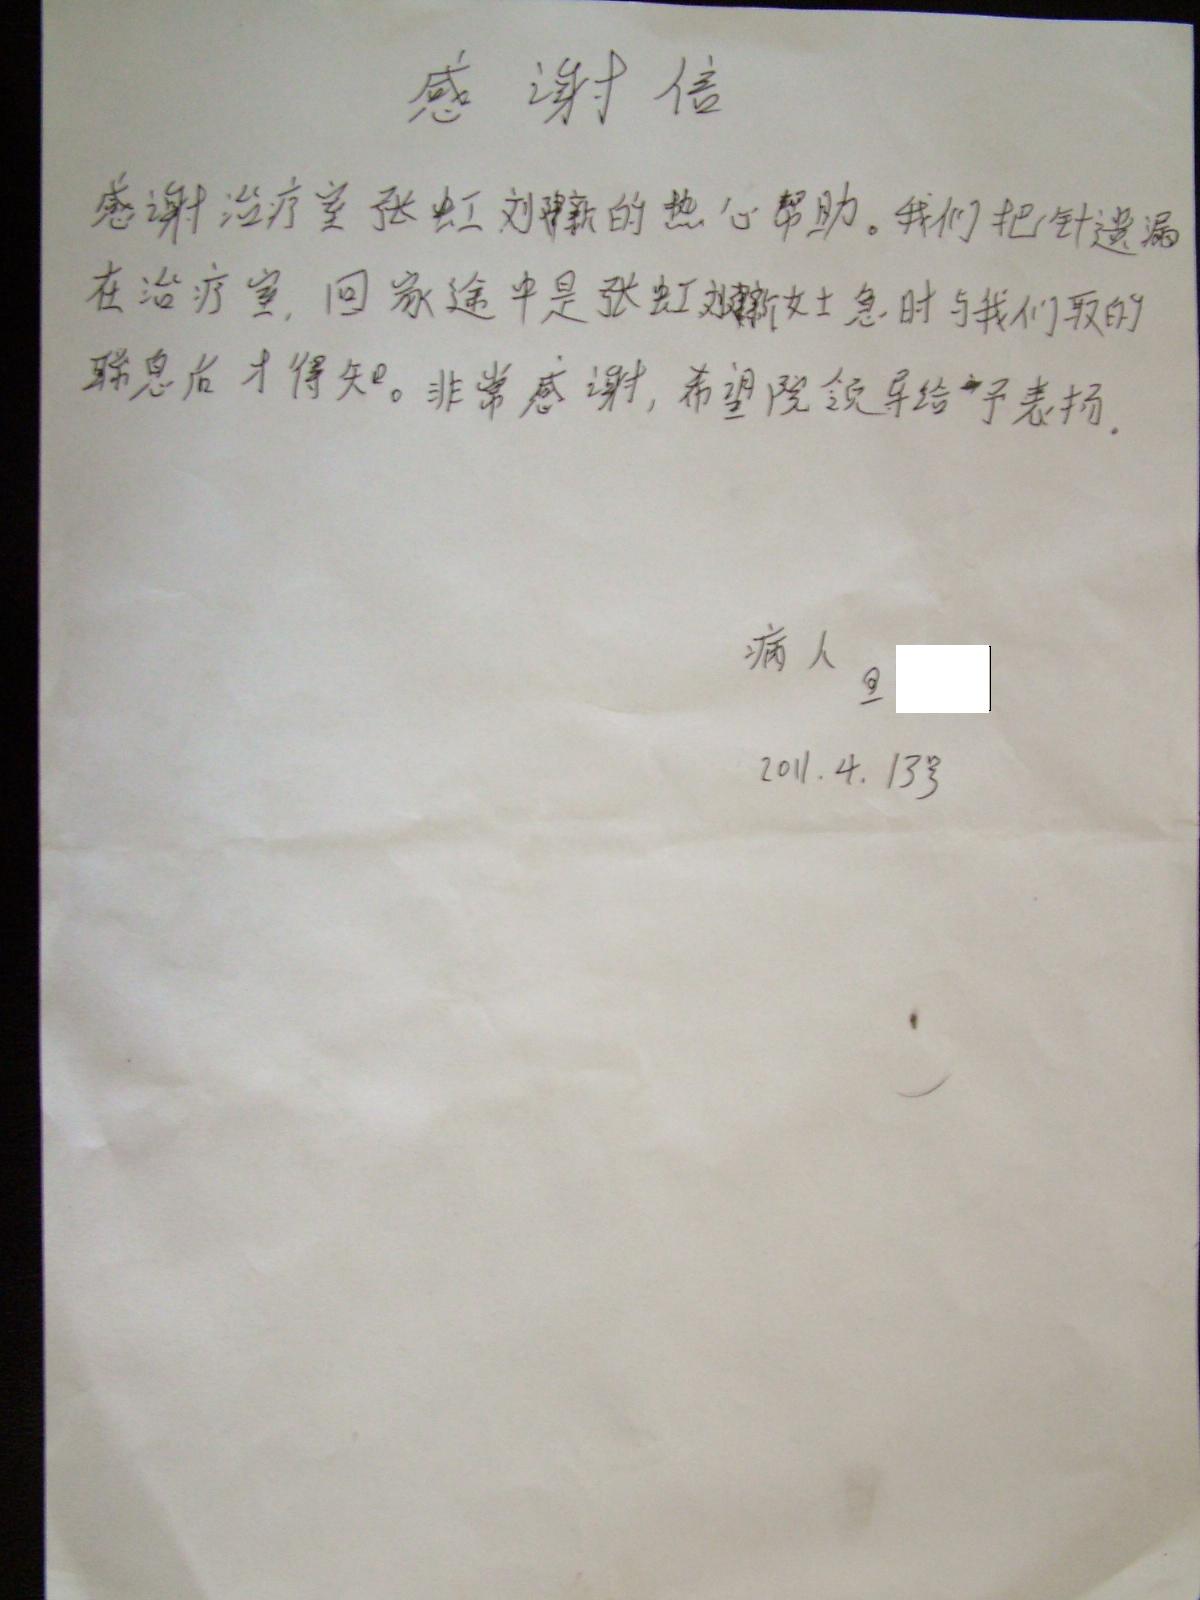 感谢信
感谢治疗室张虹刘新的热心帮助。我们把针遗漏
在治疗室，回家途中是张虹刘新女士急时与我们取的
联息后才得知。非常感谢，希望院领导给予表扬.
病人
2011.4.13号